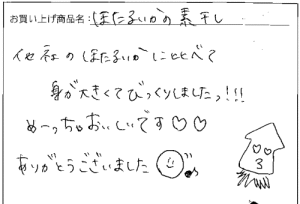 お買い上げ商品名：ほたるいかの素干し
他社のほたるいかに比べて
身が大きくてびっくりしましたっ!!!
めーっちゃおいしいです♡♡
ありがとうございました